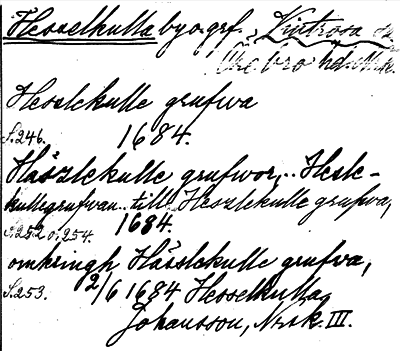 Hesselkulla by o. grf., Vintrosa sn
Örebro hd. Nrk.
Hesslekulle grufwa
S. 246. 1684.
Hässlekulle grufwor, .. Hesle-
kullegrufwan .. till Heszlekulle grufwa,
S. 252 o. 254. 1684.
omkringh Hässlekulle grufwa,
S. 253. 2/6 1684 Hesselkulla
Johansson, Nrsk. III.